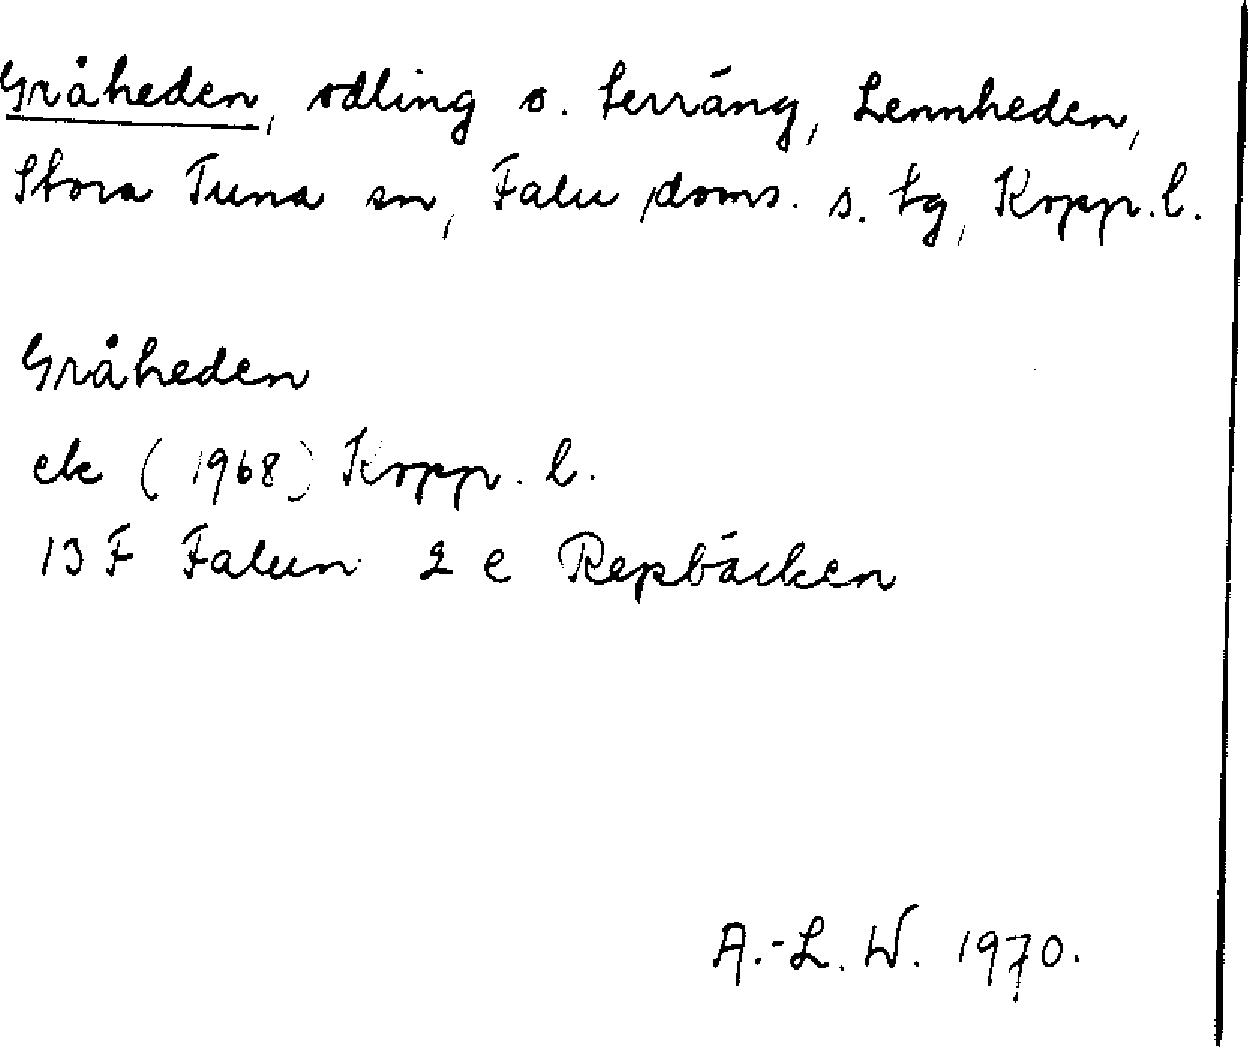 Gråheden, odling o. terräng, Lennheden,
Stora Tuna sn, Falu doms. s. tg, Kopp. l.
Gråheden
ek (1968) Kopp. l.
13 F Falun 2 e Repbäcken
A.-L. W. 1970.